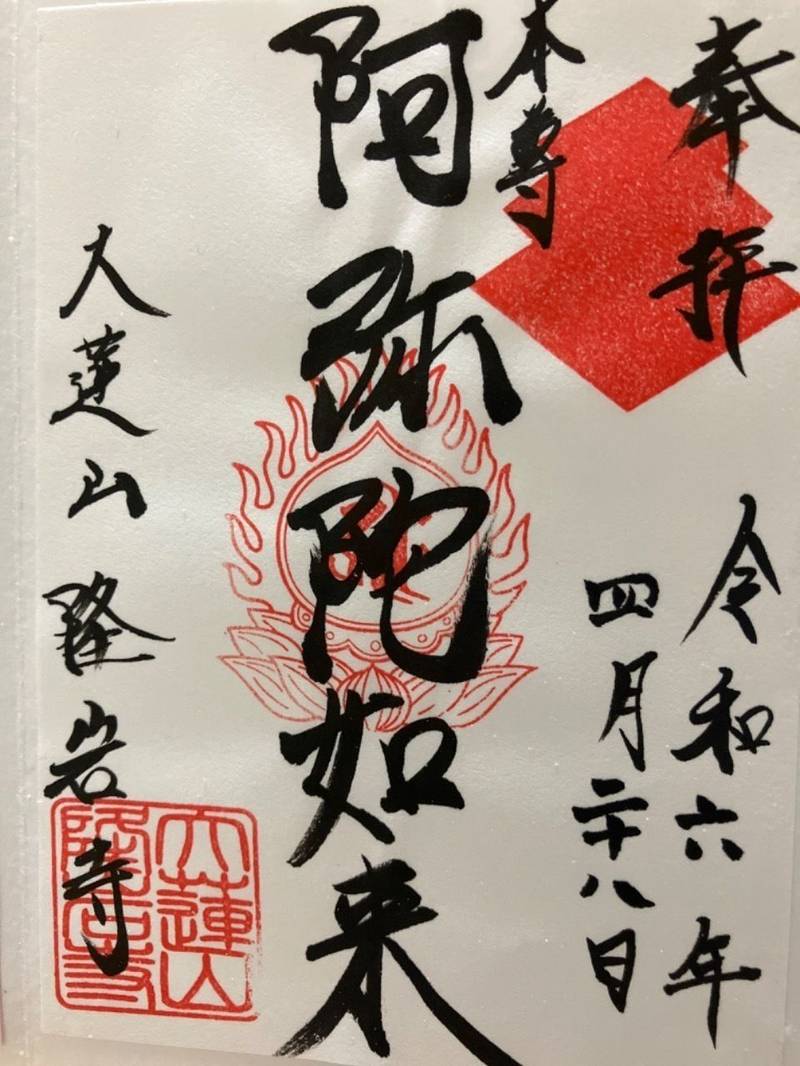 奉拝
令和六年
四月二十八日
本尊
阿弥陀如来
大蓮山隆岩寺
大蓮山
隆岩寺